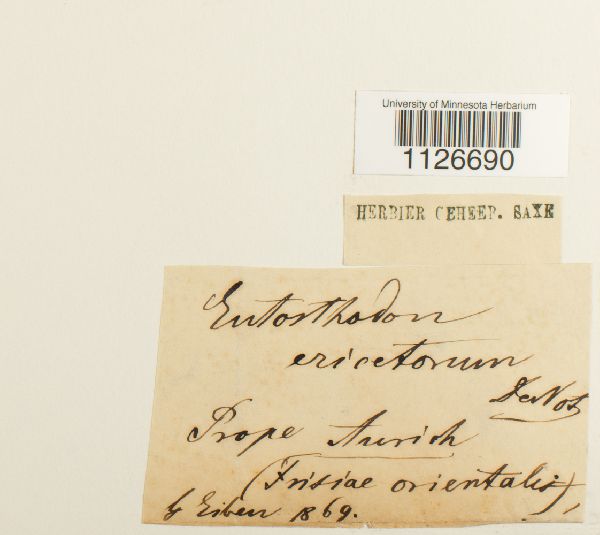 University of Minnesota Herbarium
1126690
HERBIER GEHEEP. SAXE
Entosthodon
ericetorum
DeNot
Prope Aurich
(Frisiae orientalis),
Eiben 1869.